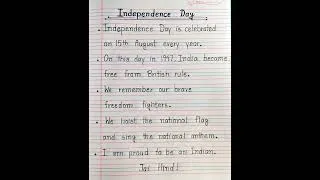 Independence Day
• Independence Day is celebrated
on 15th August every year.
• On this day in 1947, India became
free from British rule.
• We remember our brave
freedom fighters.
• We hoist the national flag
and sing the national anthem.
• I am proud to be an Indian.
Jai Hind!